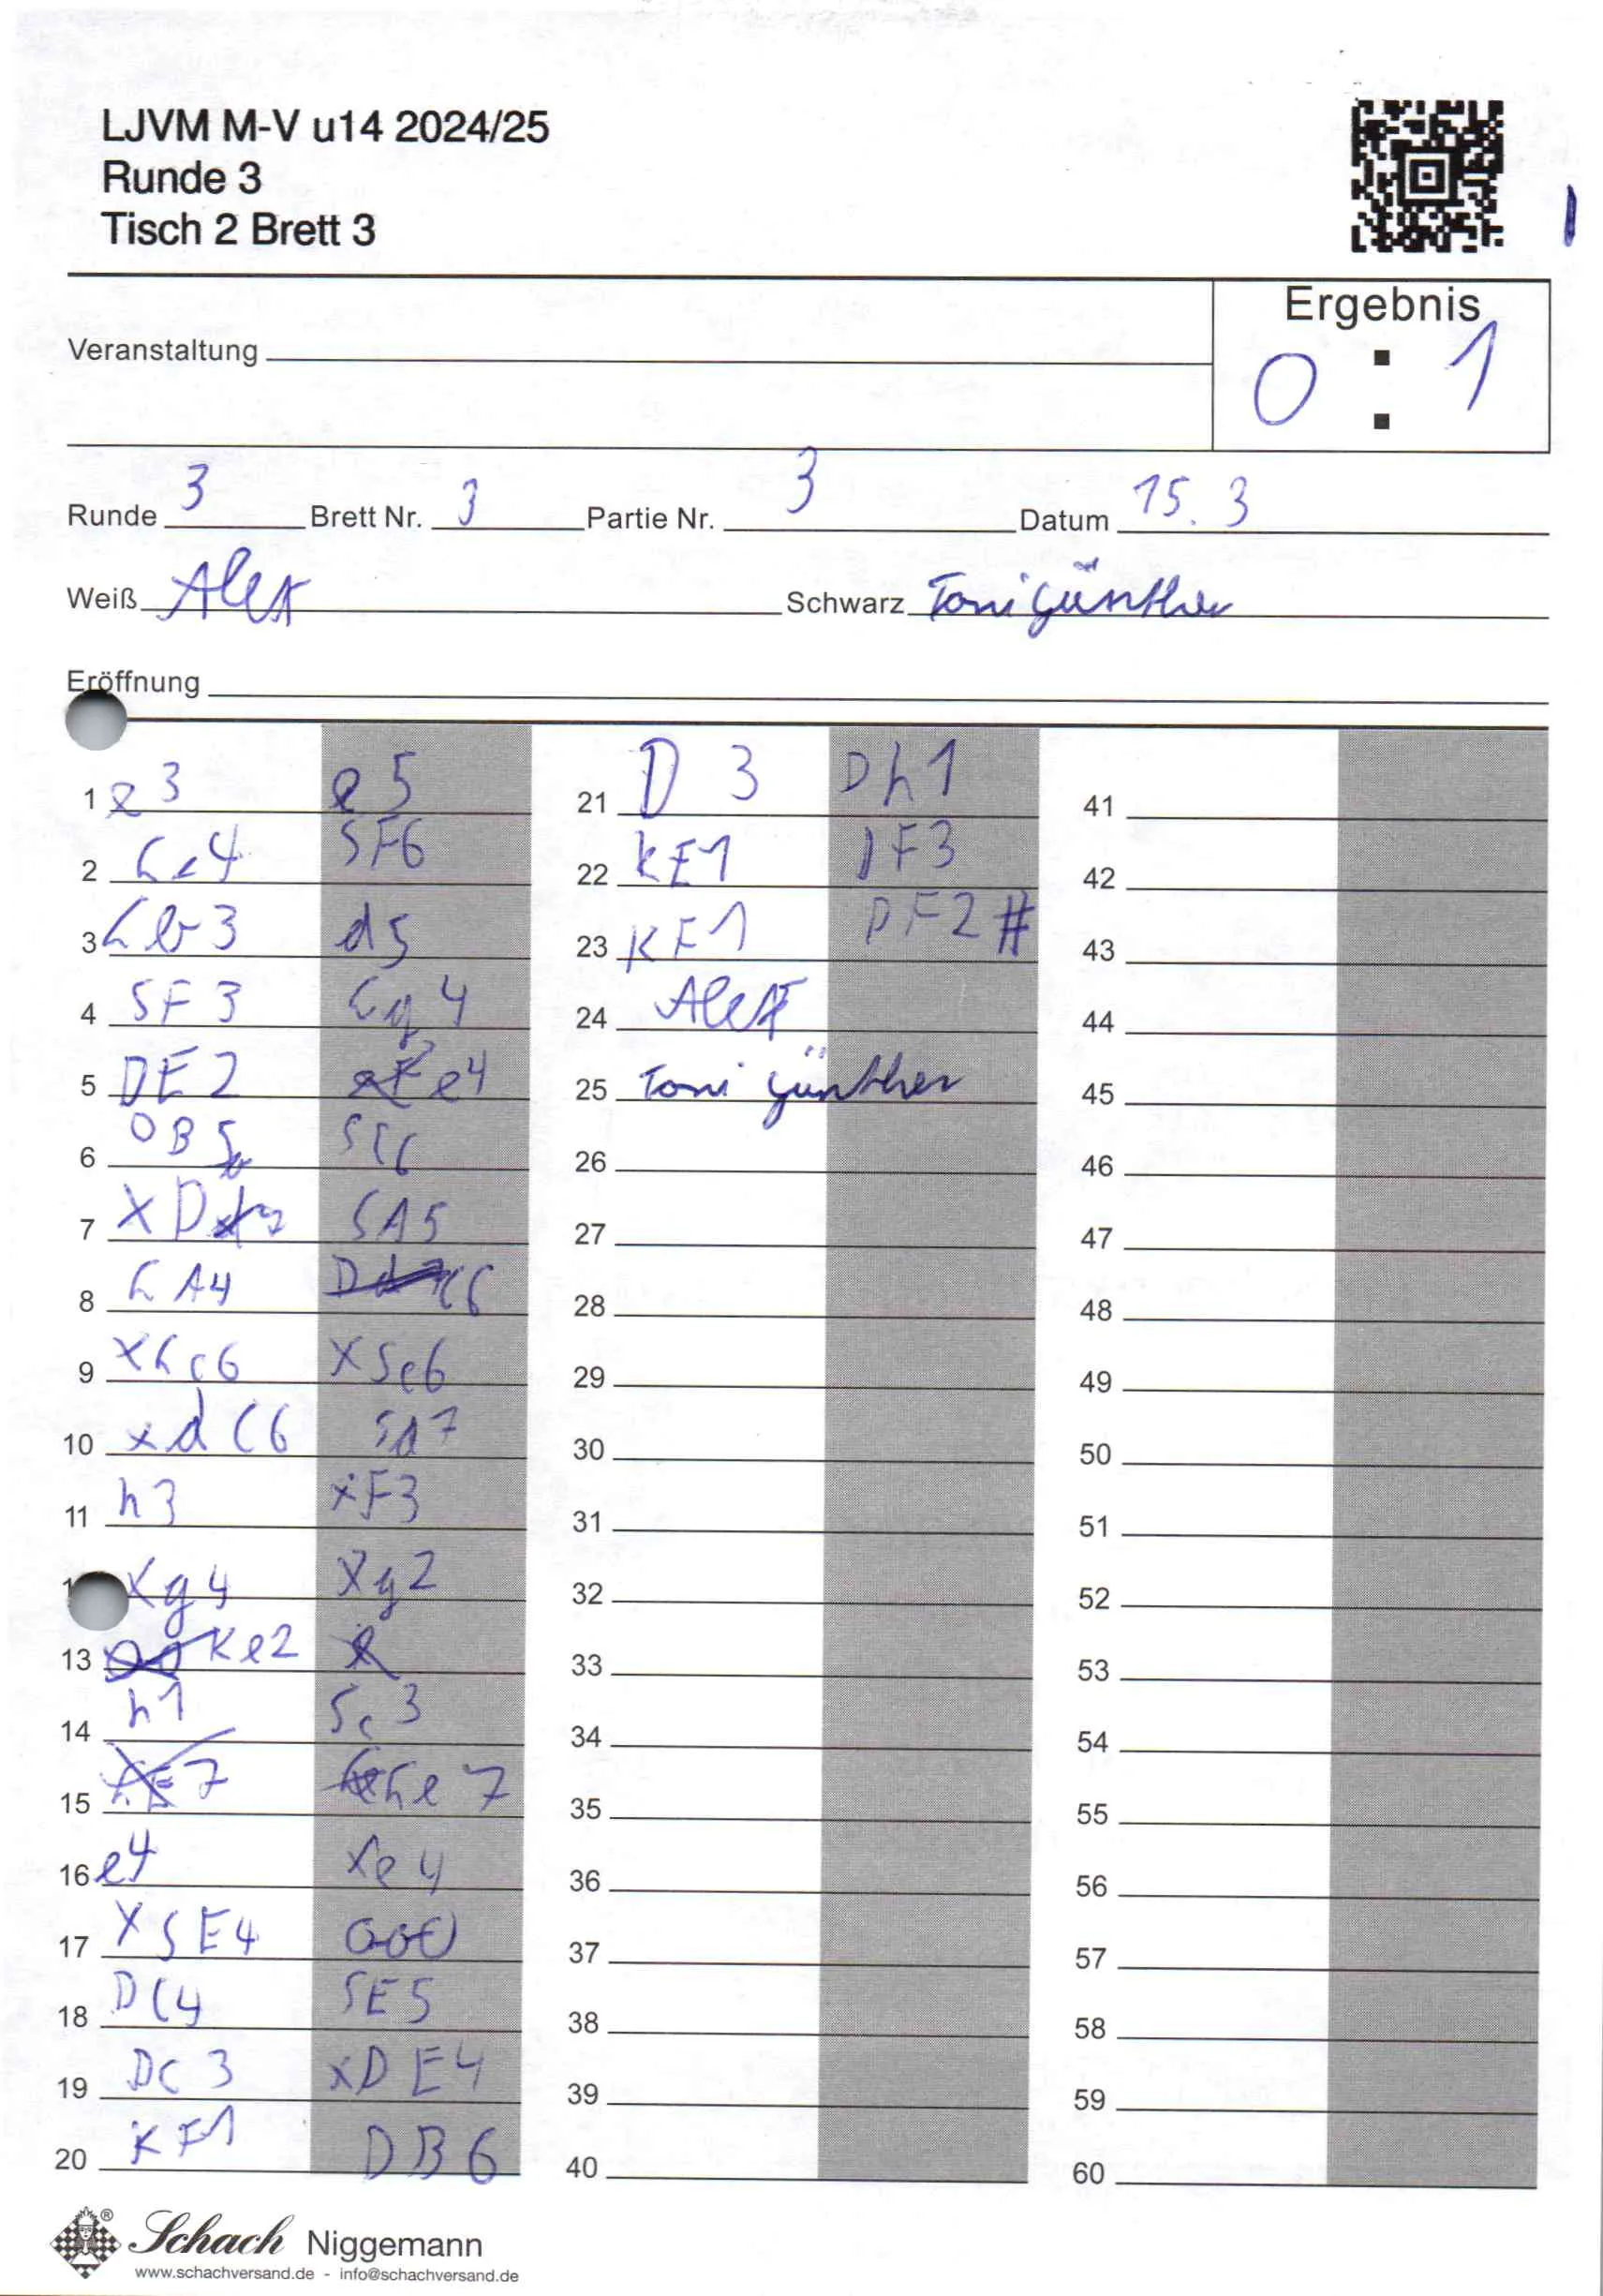 LJVM M-V u14 2024/25
Runde 3
Tisch 2 Brett 3
Ergebnis
0 : 1
Veranstaltung
Runde 3 Brett Nr. 3 Partie Nr. 3 Datum 15.3
Weiß Alex Schwarz Toni Günther
Eröffnung
1 e3 e5
2 Lc4 SF6
3 Lb3 d5
4 SF3 Lg4
5 DE2 e4
6 DB5 SC6
7 XD SA5
8 LA4 C6
9 XLc6 XSc6
10 xdC6 Sd7
11 h3 xF3
Xg4 Xg2
13 Ke2
14 h1 Sc3
15 Le7
16 e4 Xe4
17 XSE4
18 DC4 SE5
19 DC3 xDE4
20 KF1 DB6
21 D3 Dh1
22 KE1 DF3
23 KF1 DF2#
24 Alex
25 Toni Günther
26
27
28
29
30
31
32
33
34
35
36
37
38
39
40
41
42
43
44
45
46
47
48
49
50
51
52
53
54
55
56
57
58
59
60
Schach Niggemann
www.schachversand.de - info@schachversand.de